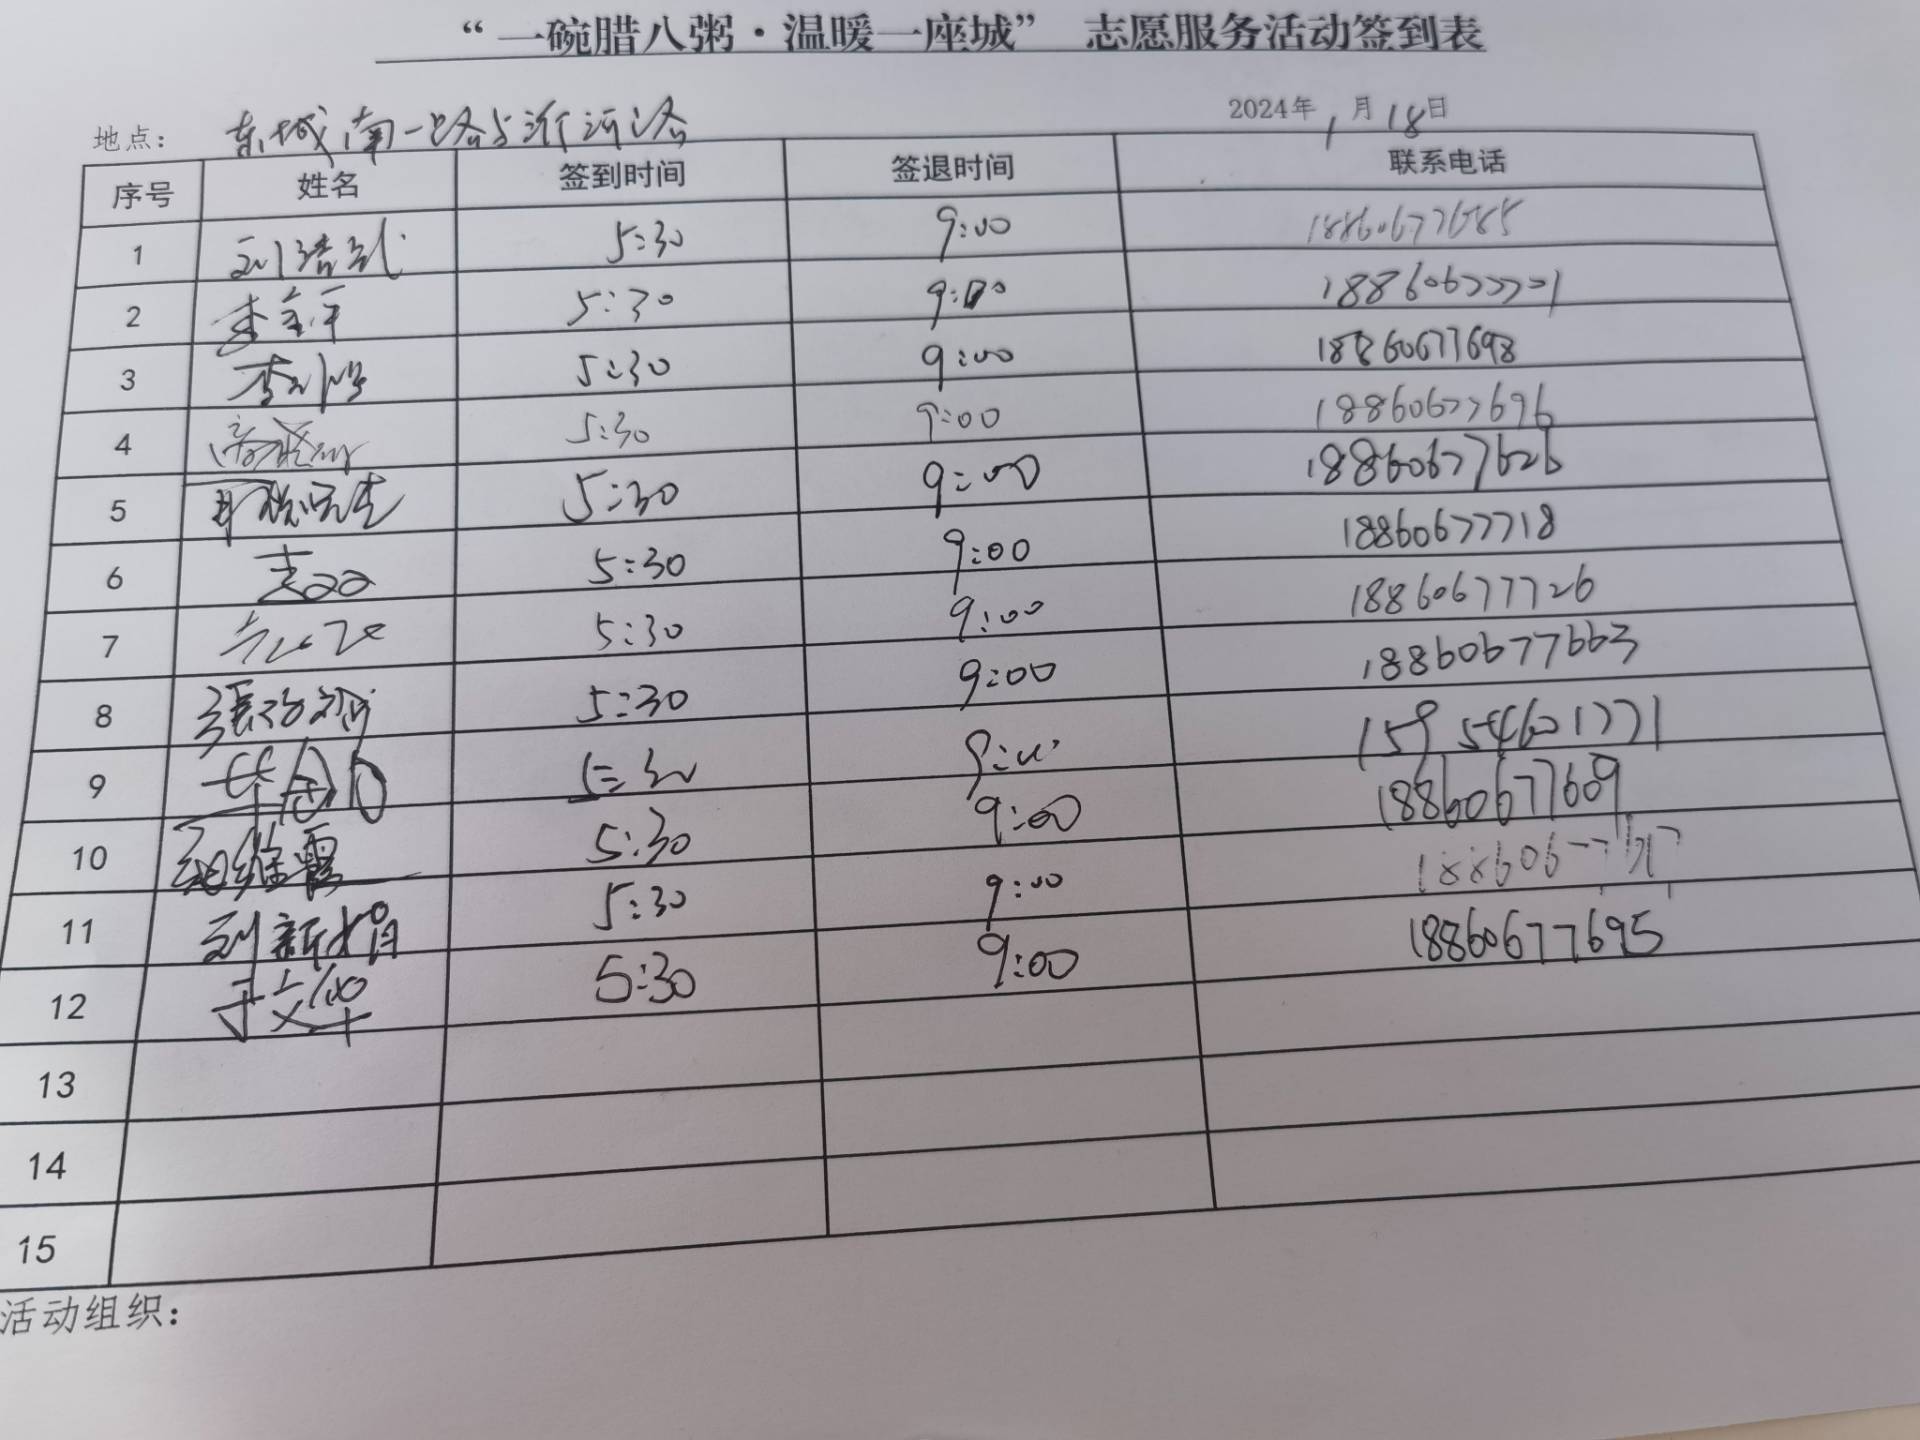 “一碗腊八粥·温暖一座城” 志愿服务活动签到表
地点： 东城南一路与沂河路 2024年 1月 18日
序号 姓名 签到时间 签退时间 联系电话
1 5:30 9:00 18860677685
2 5:30 9:00 18860677701
3 5:30 9:00 18860677698
4 5:30 9:00 18860677696
5 5:30 9:00 18860677626
6 5:30 9:00 18860677718
7 5:30 9:00 18860677726
8 5:30 9:00 18860677663
9 5:30 9:00 15954601771
10 5:30 9:00 18860677609
11 刘新娟 5:30 9:00
12 于文华 5:30 9:00 18860677695
13
14
15
活动组织：